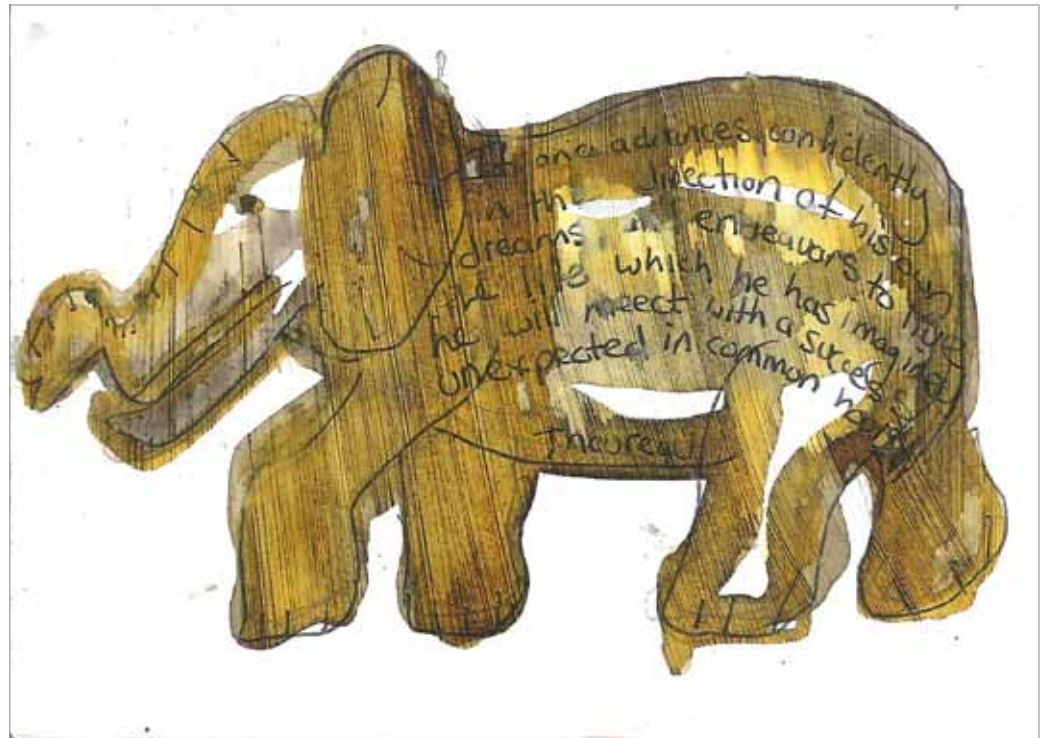 If one advances confidently
in the direction of his own
dreams and endeavors to live
the life which he has imagined
he will meect with a success
unexpected in common hours
Thoureau